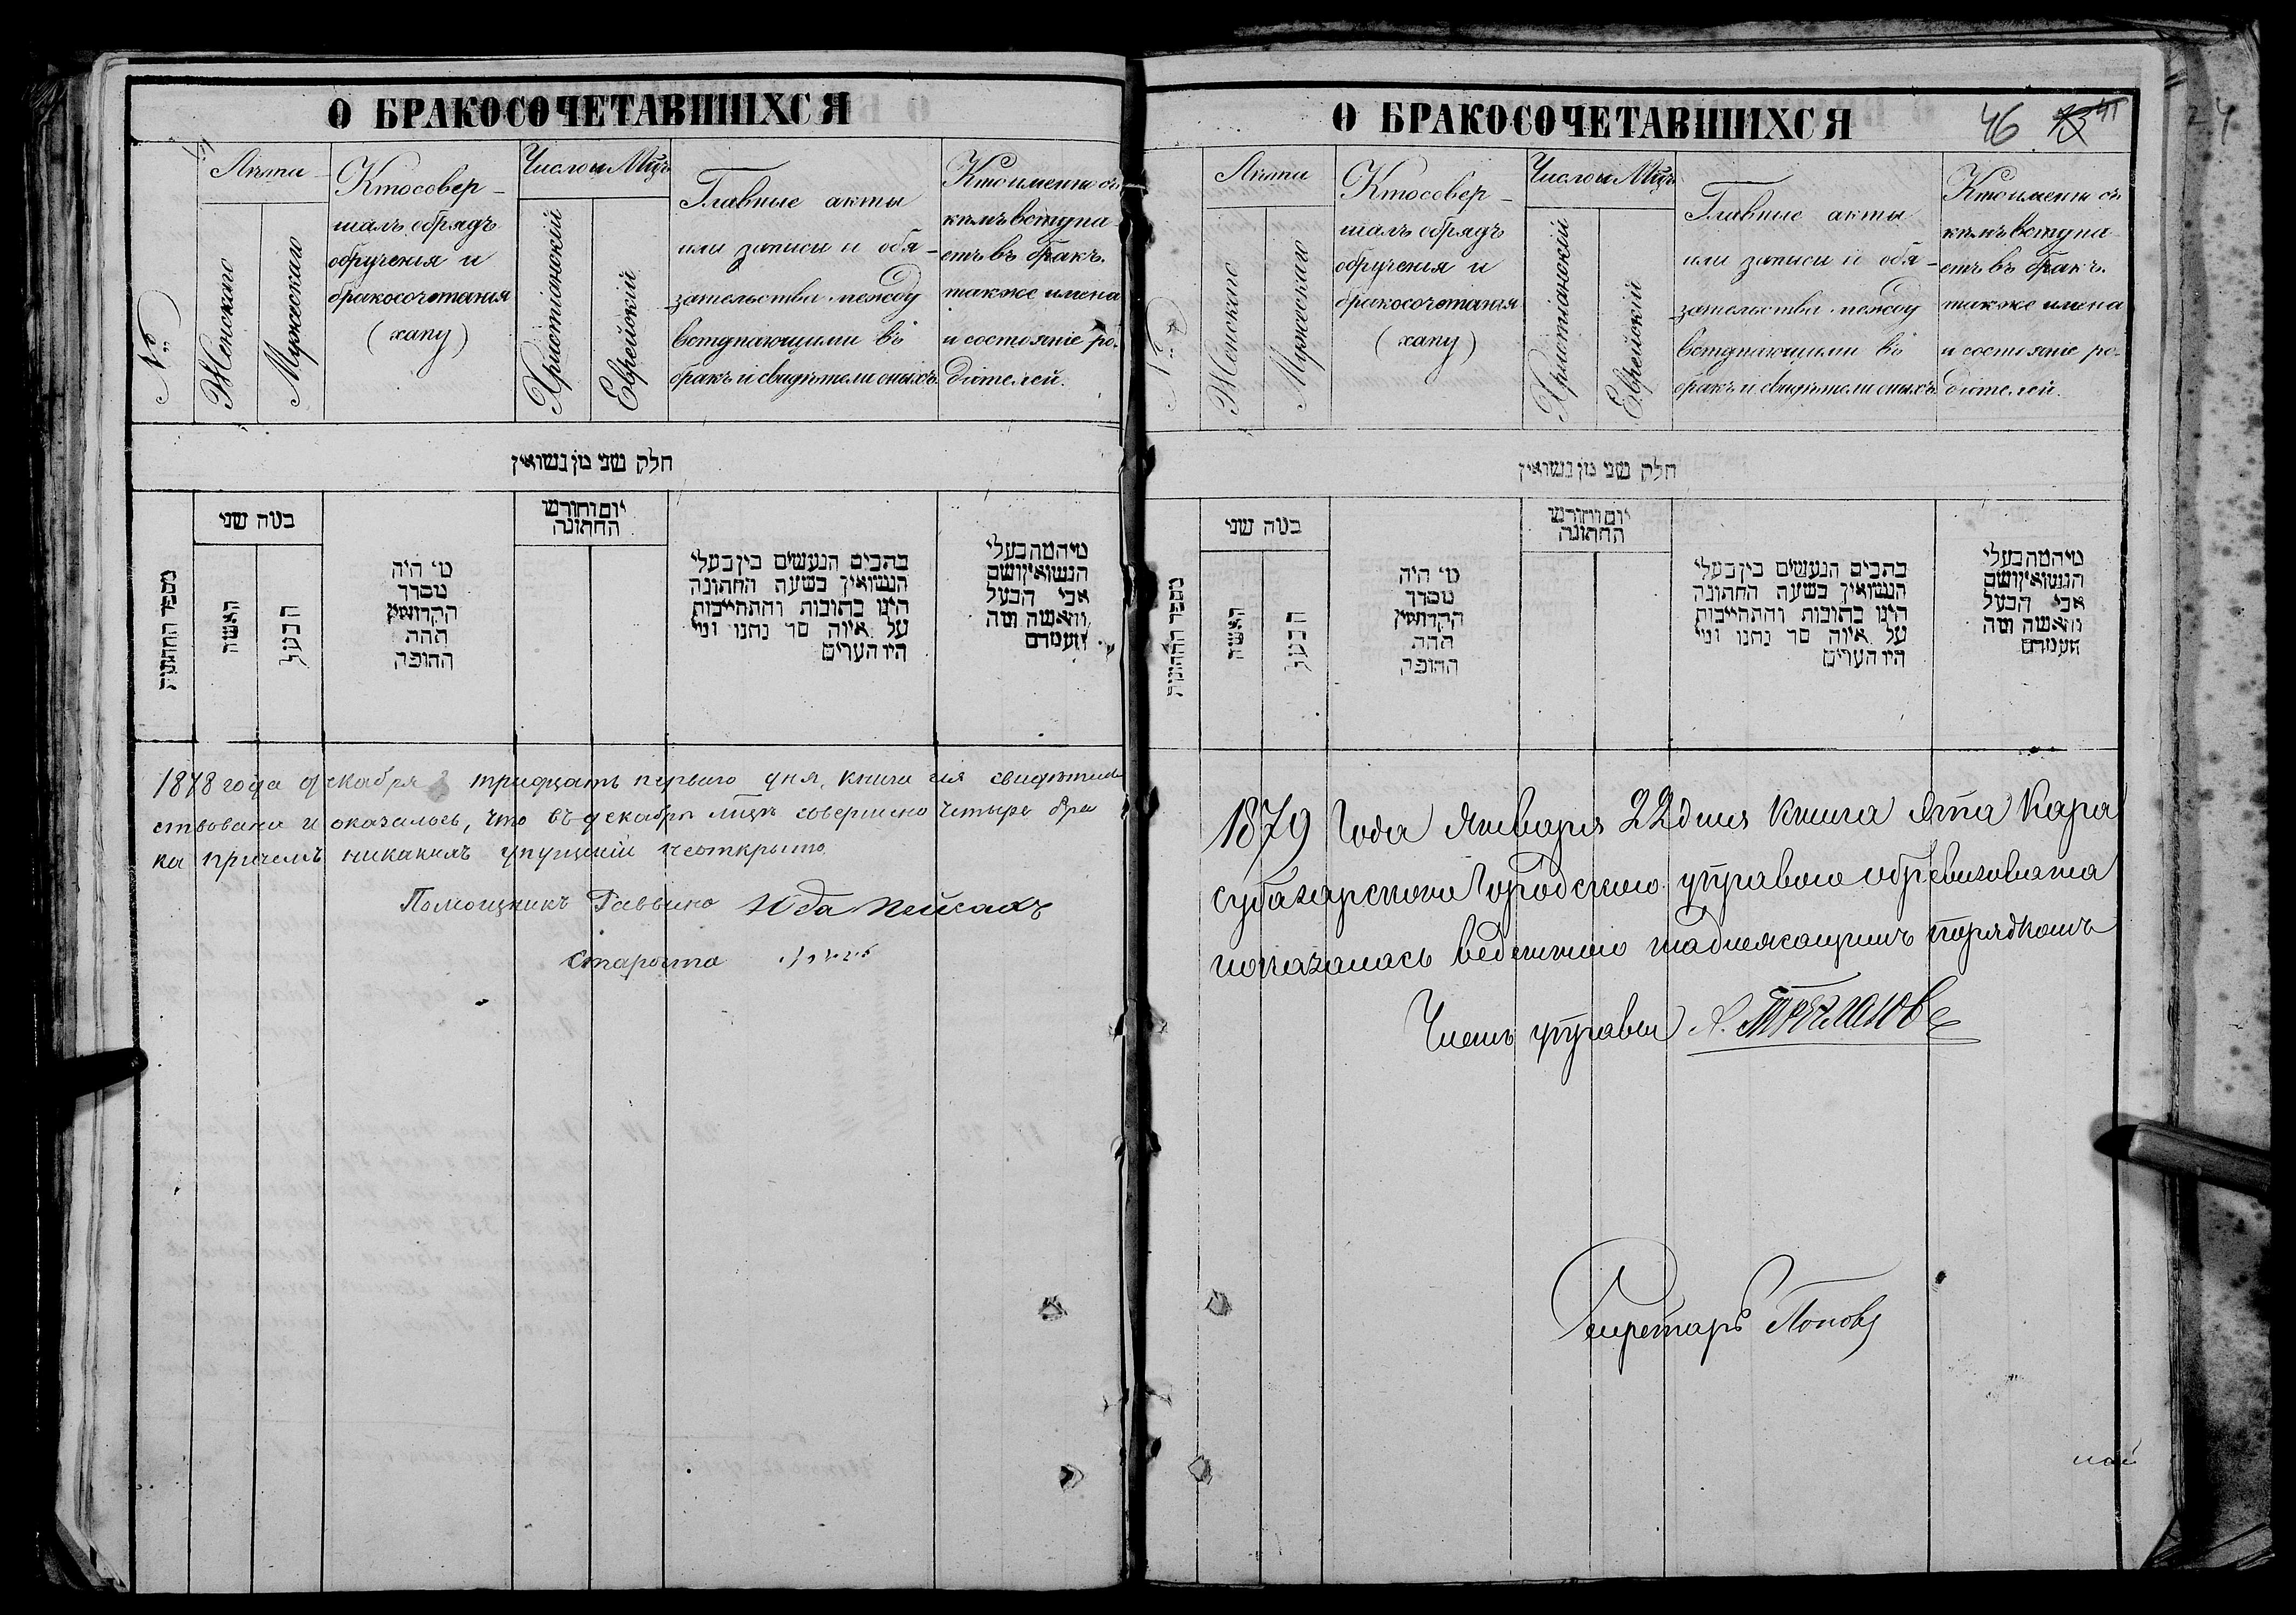 О БРАКОСОЧЕТАВШИХСЯ
№
Лѣта
Женскаго
Мужескаго
Кто совер-
шалъ обрядъ
обрученія и
бракосочетанія
(хапу)
Число и Мцъ
Христіанскій
Еврейскій
Главные акты
или записи и обя-
зательства между
вступающими въ
бракъ и свидѣтели оныхъ
Кто именно съ
кѣмъ вступа-
етъ въ бракъ.
также имена
и состояніе ро-
дителей.
חלק שני מן נשואין
מספר החתונות
במה שני
האשה
הבעל
מי היה
מסדר
הקדושין
תחת
החופה
יום וחודש
החתונה
כתבים הנעשים בין בעלי
הנשואין בשעה החתונה
היינו כתובות והתחייבות
על איזה סך נתנו ומי
היו העדים
מי המה בעלי
הנשואין ושם
אבי הבעל
והאשה ומה
מעמדם
1878 года декабря тридцать перваго дня, книга сія свидѣтель
ствована и оказалось, что въ декабрѣ мцѣ совершено четыре бра
ка причемъ никакихъ упущеній неоткрыто.
Помощникъ Раввина Юда Пейсахъ
Староста
О БРАКОСОЧЕТАВШИХСЯ
46
№
Лѣта
Женскаго
Мужескаго
Кто совер-
шалъ обрядъ
обрученія и
бракосочетанія
(хапу)
Число и Мцъ
Христіанскій
Еврейскій
Главные акты
или записи и обя-
зательства между
вступающими въ
бракъ и свидѣтели оныхъ
Кто именно съ
кѣмъ вступа-
етъ въ бракъ.
также имена
и состояніе ро-
дителей.
חלק שני מן נשואין
מספר החתונות
במה שני
האשה
הבעל
מי היה
מסדר
הקדושין
תחת
החופה
יום וחודש
החתונה
כתבים הנעשים בין בעלי
הנשואין בשעה החתונה
היינו כתובות והתחייבות
על איזה סך נתנו ומי
היו העדים
מי המה בעלי
הנשואין ושם
אבי הבעל
והאשה ומה
מעמדם
1879 Года Января 22 дня Книга Эта Кара
субазарскою Городскою управою обревизована
и оказалась веденною надлежащимъ порядкомъ
Членъ управы А.
Секретарь Поповъ